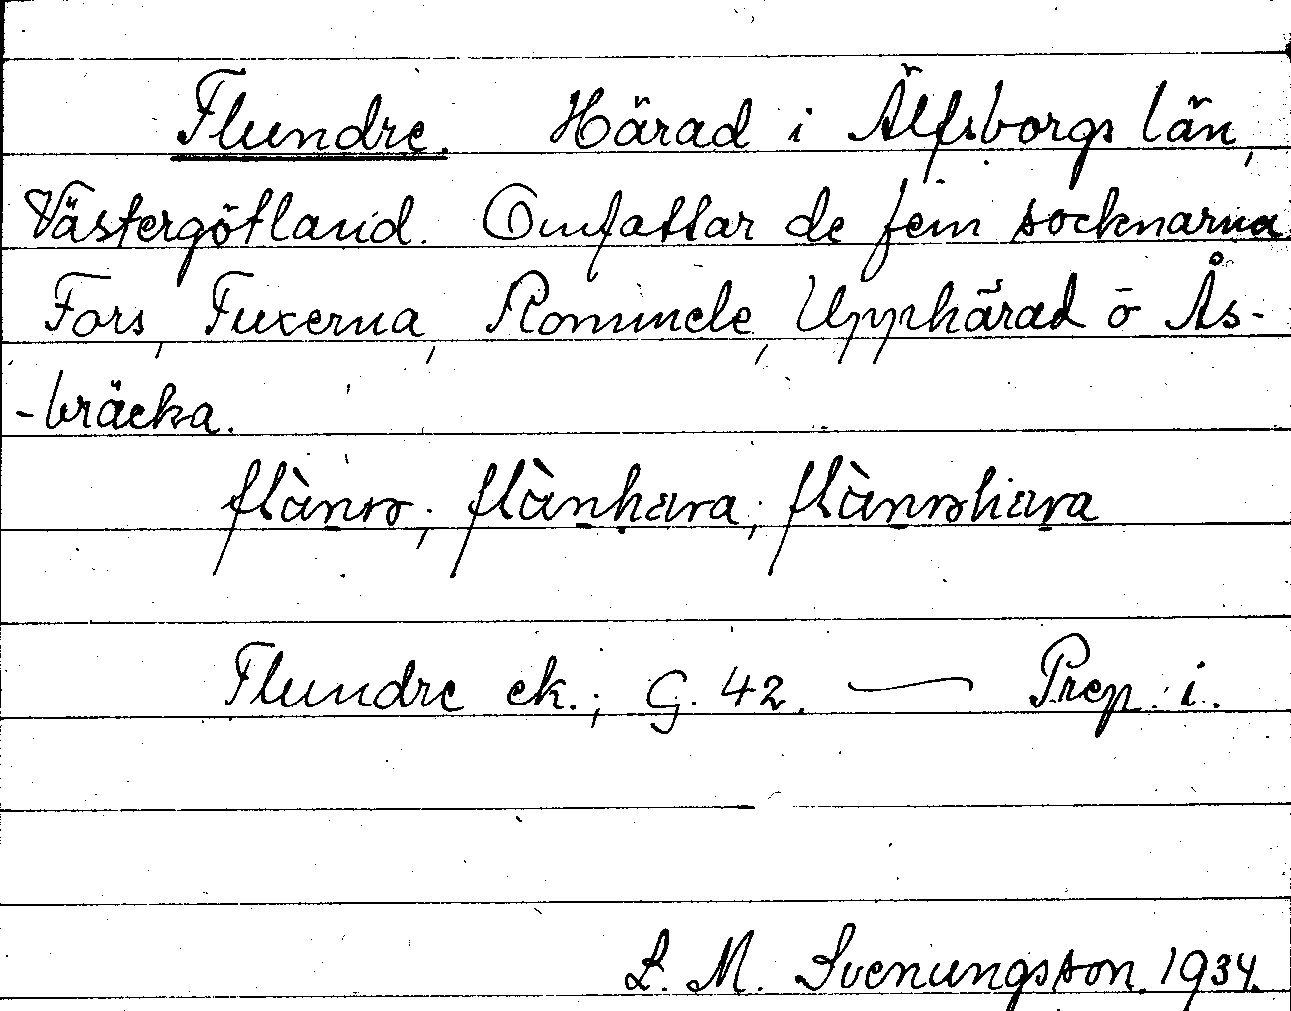 Flundre. Härad i Älfsborgs län,
Västergötland. Omfattar de fem socknarna
Fors, Fuxerna, Rommele, Upphärad o Ås-
-bräcka.
Flundre ek.; G. 42. — Prep. i.
L. M. Svenungsson. 1934.